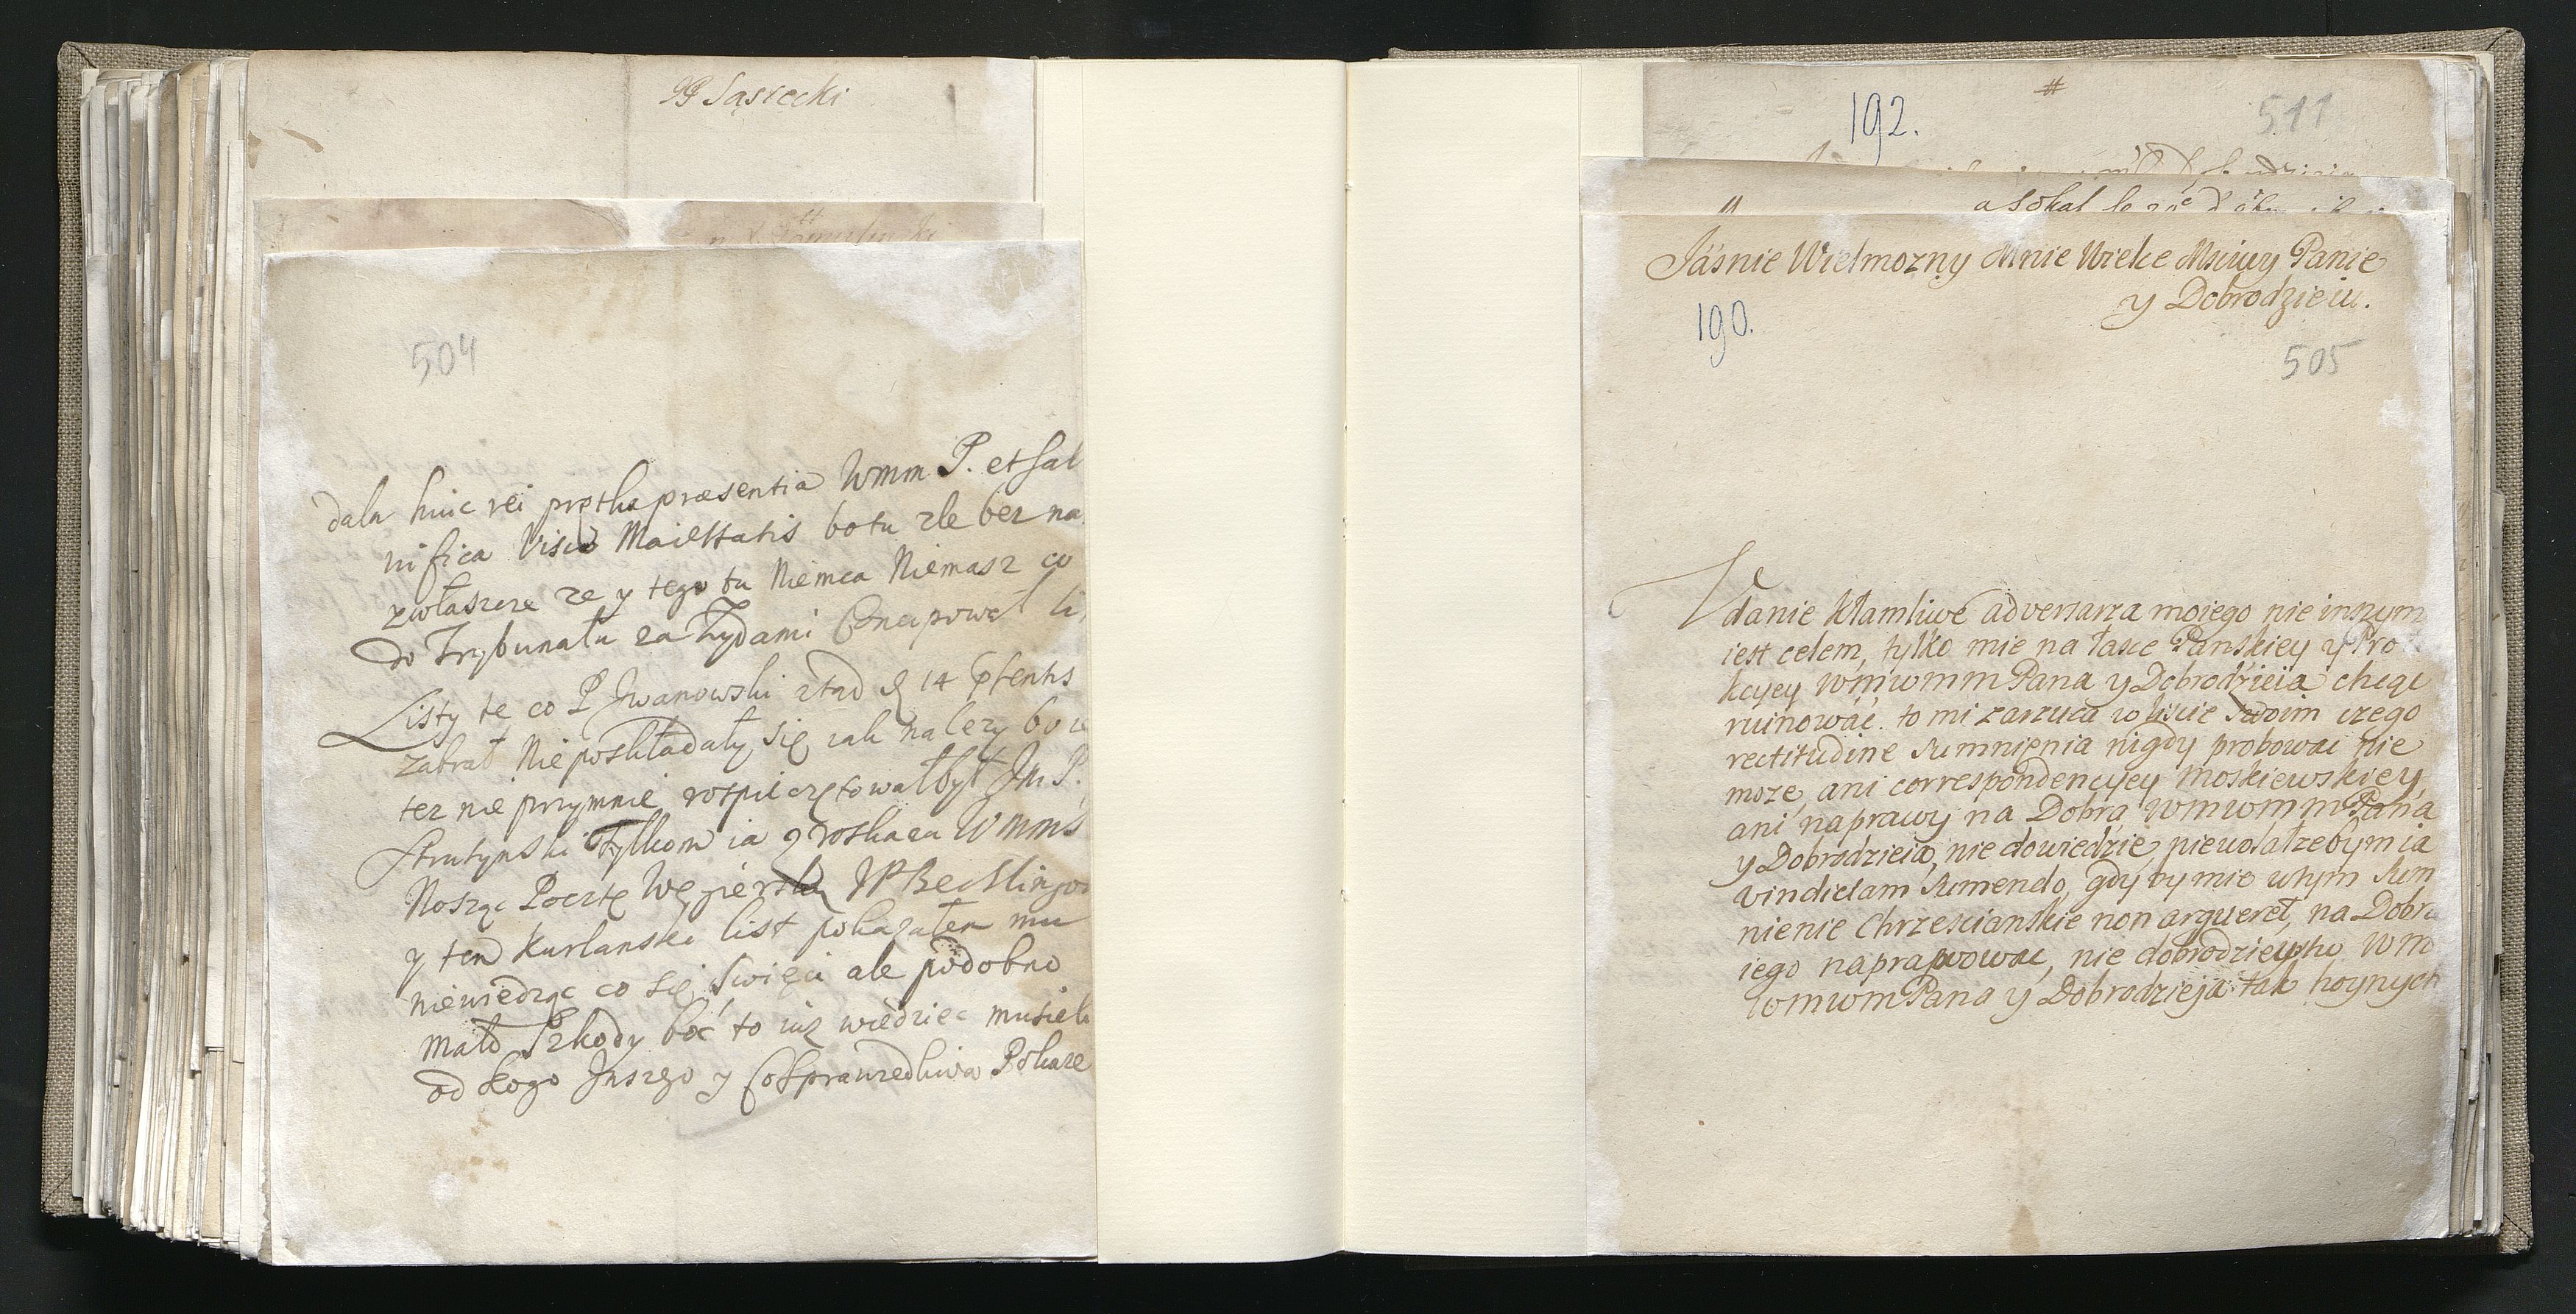 Sąsiecki
504
dalu huic rei prętka praesentia Wmm P. et sal
nifica Maiestatis bo tu zle bez na
zwłaszcze ze y tego tu Niemca Niemasz co
do Trybunału za Zydami li
Listy te co P Jwanowski ztad 14
zabrał Nieposkładały się iak nalezy bo
tez nie przymnie rospieczętował był Jm P.
Strutynski tylkom ia z roskazu Wmm
Nosząc Pocztę Węgierską JP
y ten Kurlanski list pokazałem mu
niewiedząc co się swięci ale podobno
mało Szkody boć to iuz wiedziec musieli
od kogo Jnszego y Pokaze
192.
511
#
Jaśnie Wielmozny Mnie Wielce Msciwy Panie
y Dobrodzieiu.
190.
505
Vdanie kłamliwe adversarza moiego nie inszym
iest celem, tylko mie na łasce Panskiey y Pro
kcyey WmwmmPana y Dobrodzieia chcąc
ruinowáć. to mi zarzuca w liscie swoim czego
rectitudine sumnięnia nigdy probowac nie
moze, ani correspondencyey Moskiewskiey,
ani naprawy na Dobra WmwmmPana
y Dobrodzieia, nie dowiedzie, niewdałzebym ia
vindictam sumendo, gdy by mie wtym sum
nienie Chrzescianskie non argueret, na Dobra
iego naprawowac, nie dobrodzieystw Wm
WmwmPana y Dobrodzieja tak hoynych